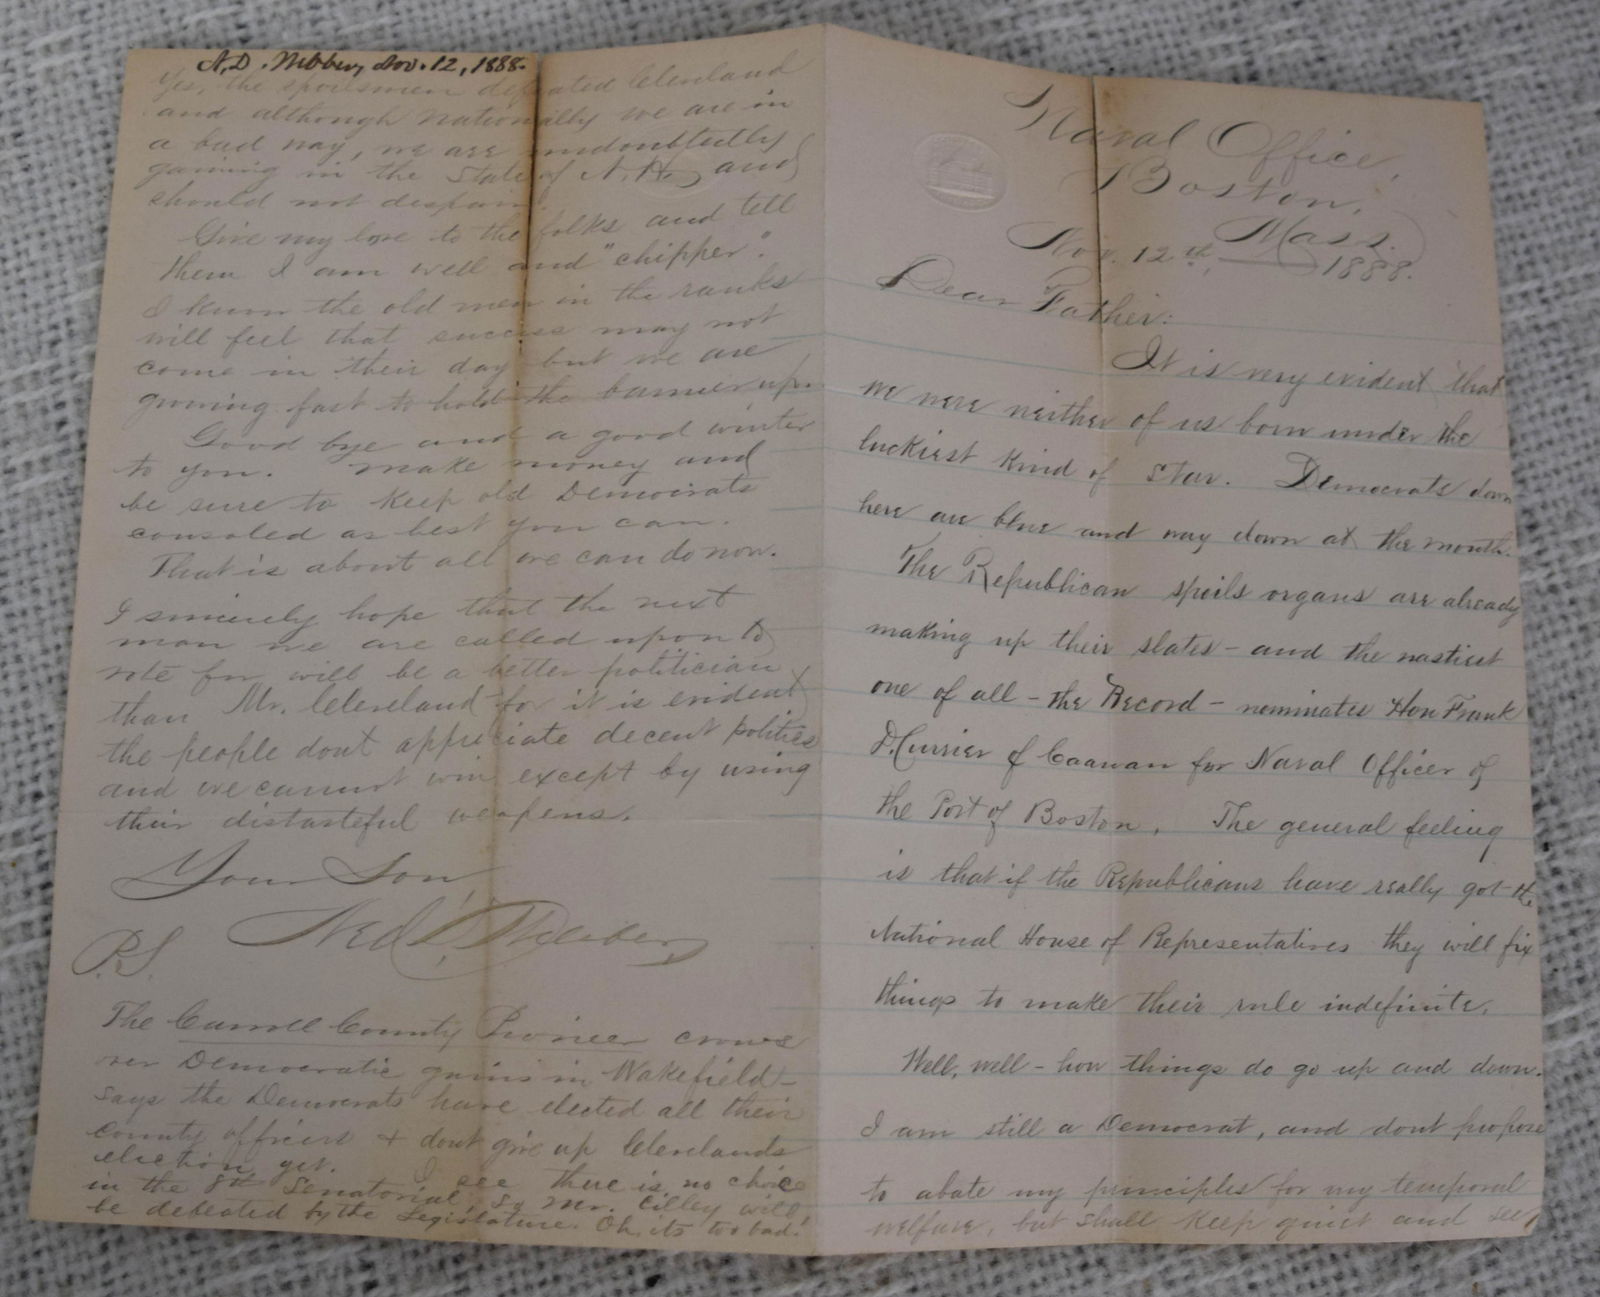 Naval Office,
Boston,
Mass.
Nov. 12th, 1888.
Dear Father:
It is very evident that
we were neither of us born under the
luckiest kind of star. Democrats down
here are blue and way down at the mouth.
The Republican spoils organs are already
making up their slates - and the nastiest
one of all - the Record - nominates Hon Frank
D. Currier of Caanan for Naval Officer of
the Port of Boston. The general feeling
is that if the Republicans have really got the
National House of Representatives they will fix
things to make their rule indefinite.
Well, well - how things do go up and down.
I am still a Democrat, and dont propose
to abate my principles for my temporal
welfare, but shall keep quiet and see
N.D. Nov. 12, 1888.
Yes, the spoilsmen defeated Cleveland
and although nationally we are in
a bad way, we are undoubtedly
gaining in the State of N.H., and
should not despair.
Give my love to the folks and tell
them I am well and "chipper".
I know the old men in the ranks
will feel that success may not
come in their day but we are
growing fast to hold the banner up.
Good bye and a good winter
to you. Make money and
be sure to keep old Democrats
consoled as best you can.
That is about all we can do now.
I sincerely hope that the next
man we are called upon to
vote for will be a better politician
than Mr. Cleveland for it is evident
the people dont appreciate decent politics
and we cannot win except by using
their distasteful weapons.
Your Son,
Ned
P.S.
The Carroll County Pioneer crows
over Democratic gains in Wakefield -
says the Democrats have elected all their
county officers & dont give up Clevelands
election yet. I see there is no choice
in the 8th Senatorial so Mr. Cilley will
be defeated by the Legislature. Oh, its too bad!